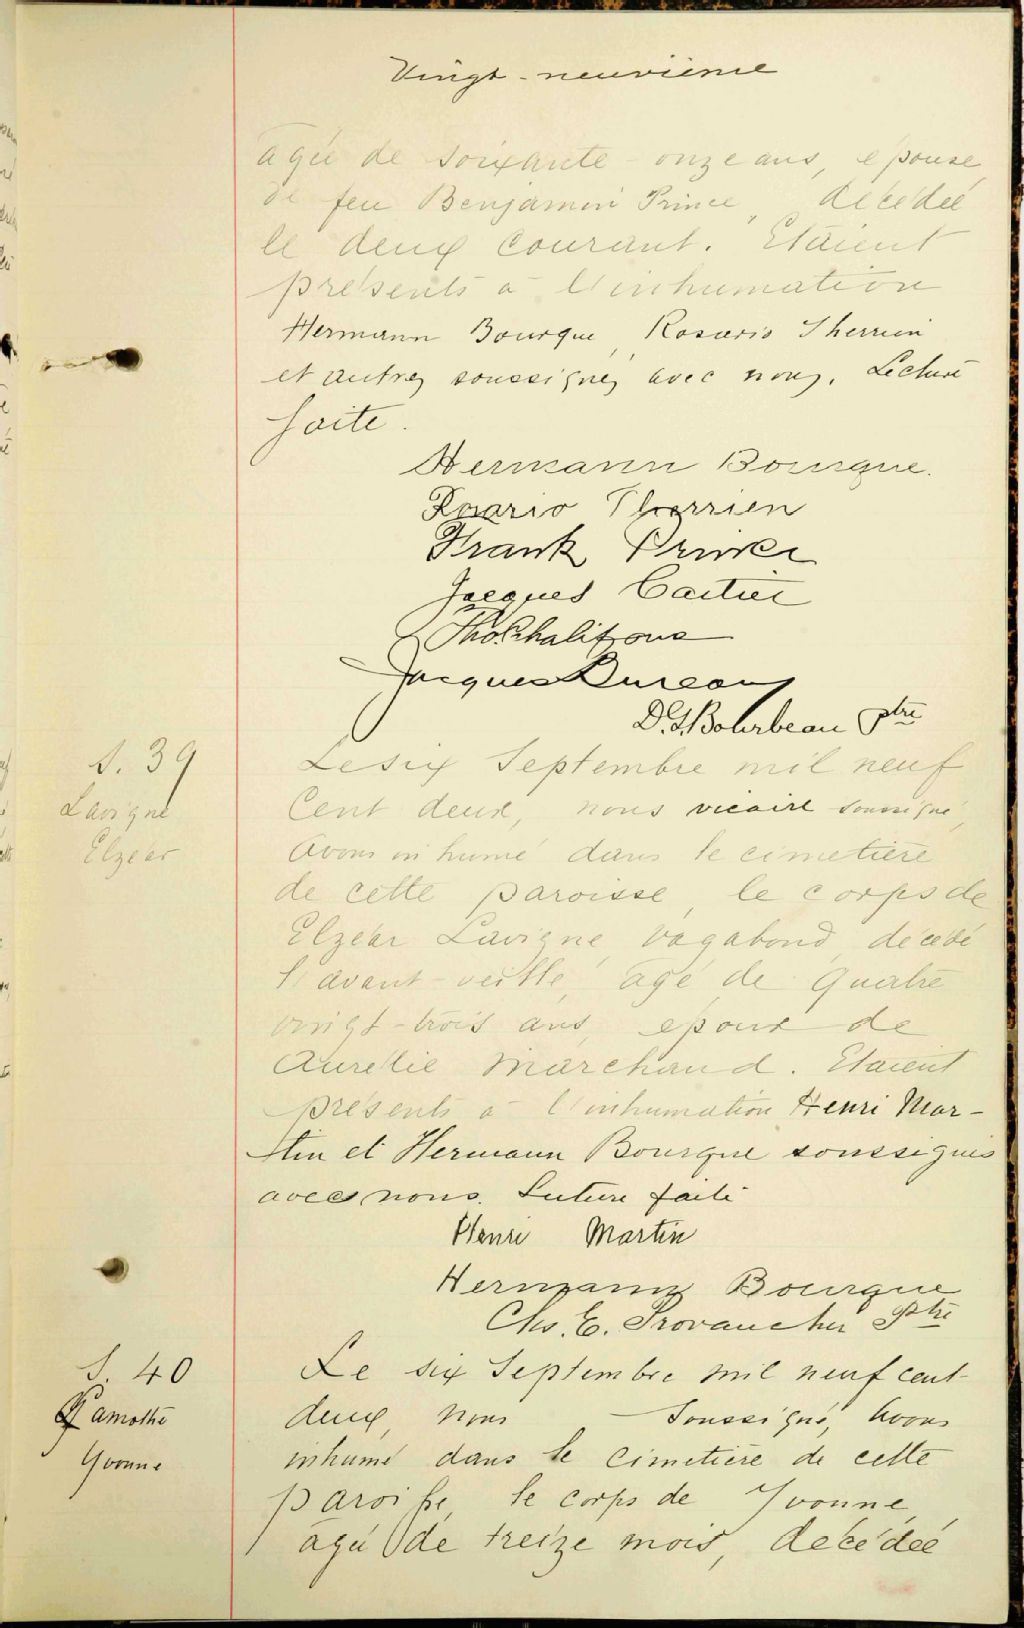 Vingt-neuvième
agée de soixante-onze ans, épouse
de feu Benjamin Prince, décédée
le deux courant. Etaient
présents à l'inhumation
Hermann Bourque, Rosario Therrien
et autres soussignés avec nous. Lecture
faite.
Hermann Bourque.
Rosario Therrien
Frank Prince
Jacques Cartier
Jacques Bureau
D. G. Bourbeau Ptre
S. 39
Lavigne
Elzéar
Le six Septembre mil neuf
Cent deux, nous vicaire soussigné,
Avons inhumé dans le cimetière
de cette paroisse, le corps de
Elzéar Lavigne, vagabond, décédé
l'avant-veille, agé de quatre
vingt-trois ans, epoux de
Aurélie Marchand. Etaient
présents à l'inhumation Henri Mar-
tin et Hermann Bourque soussignés
avec nous. Lecture faite
Henri Martin
Hermann Bourque
Chs. E. Provancher Ptre
S. 40
Lamothe
Yvonne
Le six Septembre mil neuf cent
deux, nous — soussigné, Avons
inhumé dans le Cimetière de cette
paroisse, le corps de Yvonne,
agée de treize mois, décédée